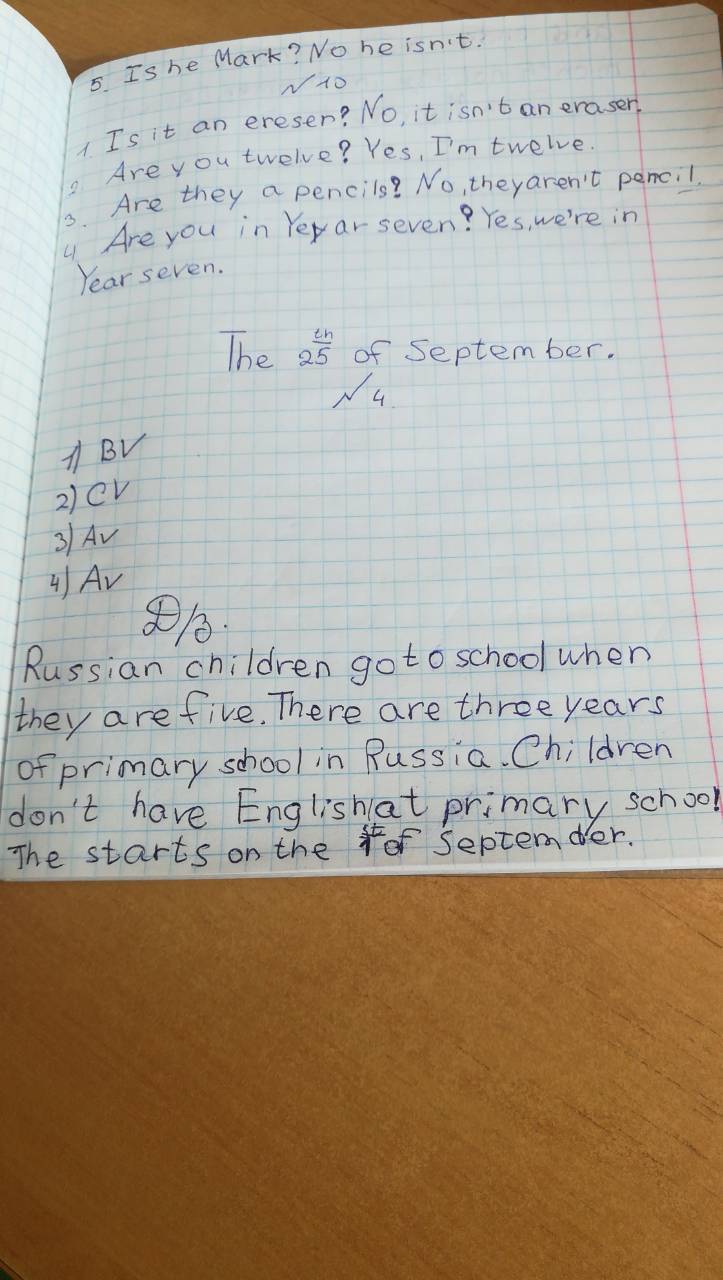 5. Is he Mark? No he isn't.
N 10
1. Is it an ereser? No, it isn't an eraser.
2. Are you twelve? Yes, I'm twelve.
3. Are they a pencils? No, they aren't pencil.
4 Are you in Yeyar seven? Yes, we're in
Year seven.
The 25th of September.
N 4.
1) BV
2) CV
3) AV
4) AV
Д/з.
Russian children go to school when
they are five. There are three years
of primary school in Russia. Children
don't have English at primary school
The starts on the 1st of Septemder.